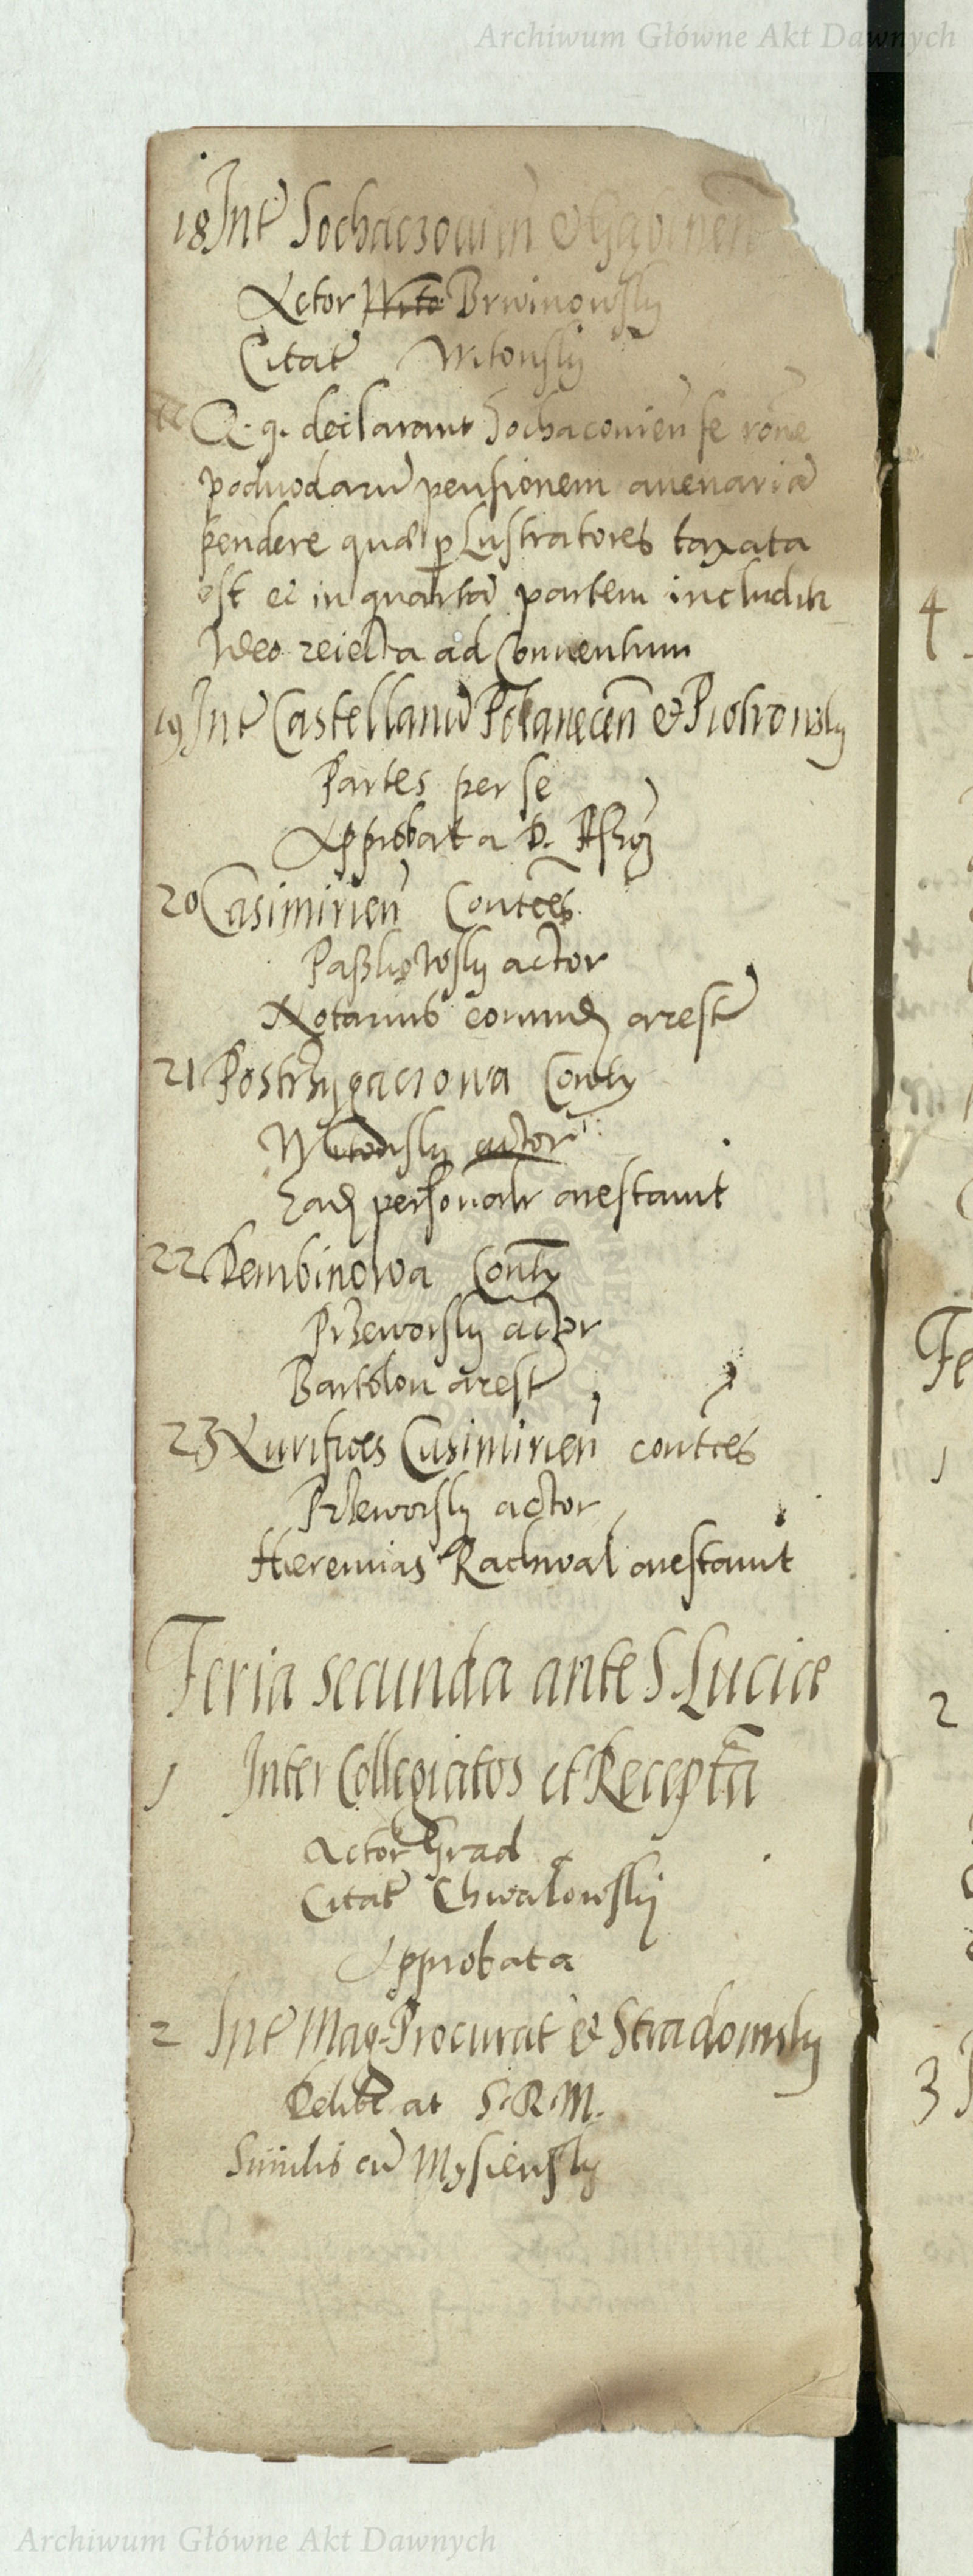 Archiwum Główne Akt Dawnych
18 Int Sochaczouien &
Actor Wito Brwinowsky
Citat Witousky
Q. q. declarant Sochaconien se rone
poduodaru pensionem auenaria
pendere quæ p Lustratores taxata
est et in quarta partem includit
Ideo reiecta ad Conuentum
19 Int Castellanu Polanecen & Piotrowsky
Partes per se
Approbata D.
20 Casimirien Contces
actor
Notarius eorund arest
21 Postrzygaciowa Contx
Witousky actor
Ead personalr arestauit
22 Rembinowa Contx
Przeworsky actor
Bartolon arest
23 Aurifices Casimirien contces
Przeworsky actor
Hieremias Rachwal arestauit
Feria secunda ante S. Luciæ
1 Inter Collegiatos et Recepta
Actor Grad
Citat Chwalowsky
Approbata
2 Int Mag. Procurat & Stradomsky
at S. R. M.
Similis cu Mysiensky
4
Fe
1
2
3
Archiwum Główne Akt Dawnych